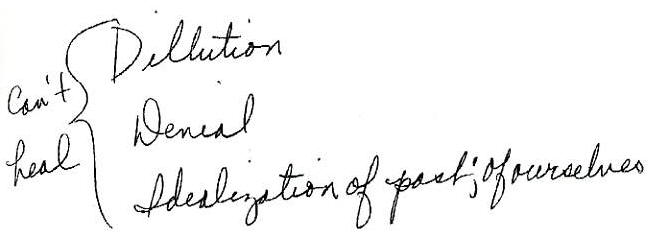 Dillution
Can't
Denial
heal
Idealization of past; of ourselves